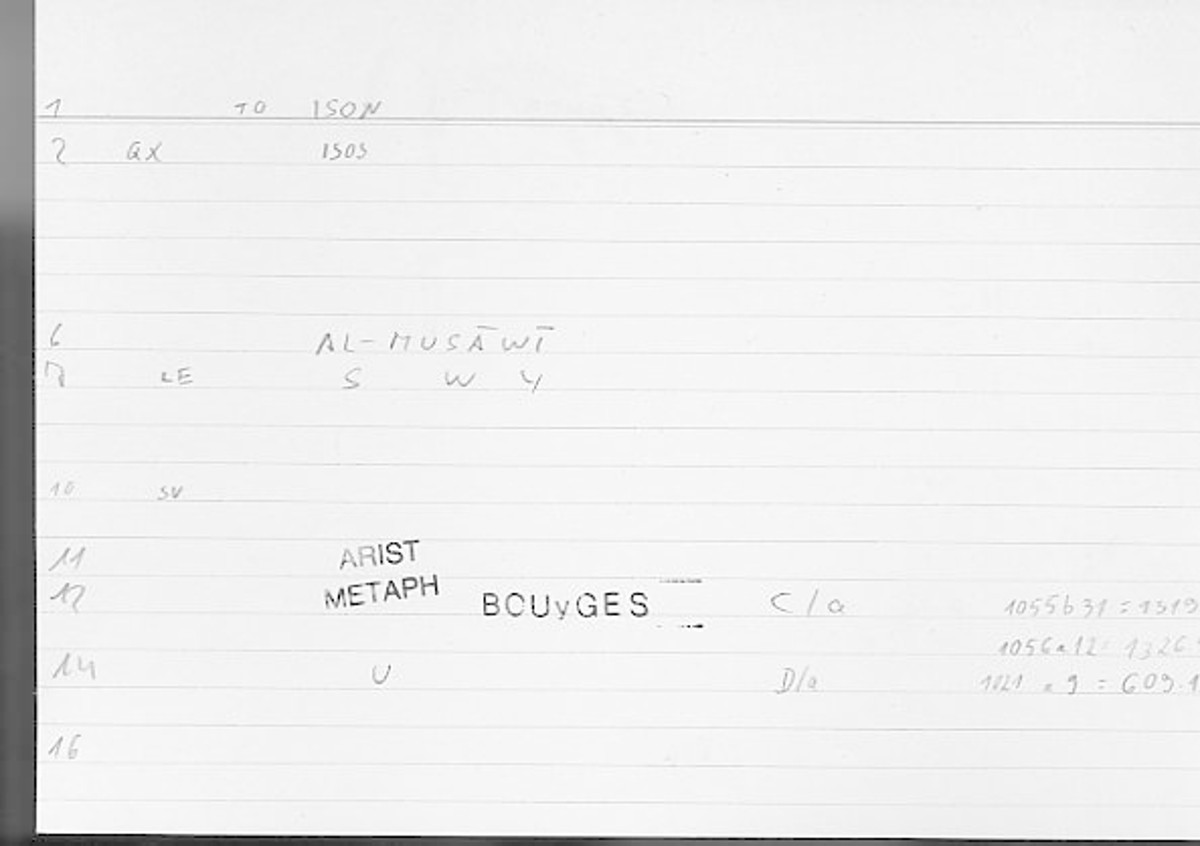 1 TO ISON
2 GX ISOS
6 AL-MUSĀWĪ
LE S W Y
10 SV
11 ARIST
12 METAPH BOUyGES C/a 1055b31 = 1319
1056a12 = 1326
14 U D/a 1021 a 9 = 609.1
16